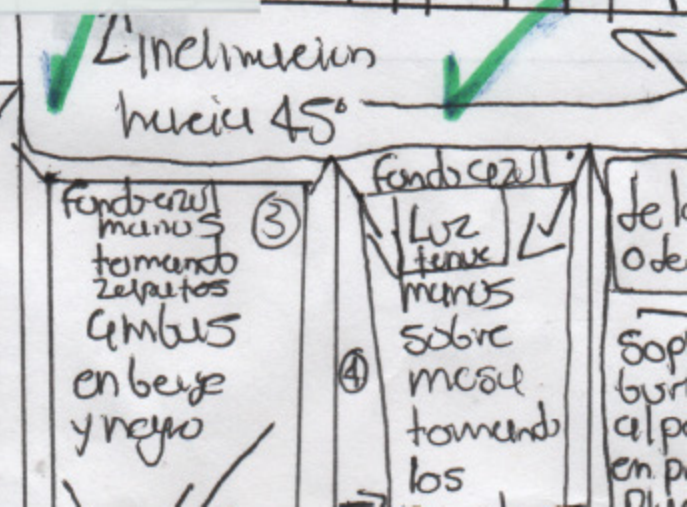 ∠ Inclinacion
hacia 45°
fondo azul
manos
tomando
zapatos
ambas
en beige
y negro
③
fondo azul
Luz
tenue
manos
sobre
mesa
tomando
los
④
de la
o de
sop
en p